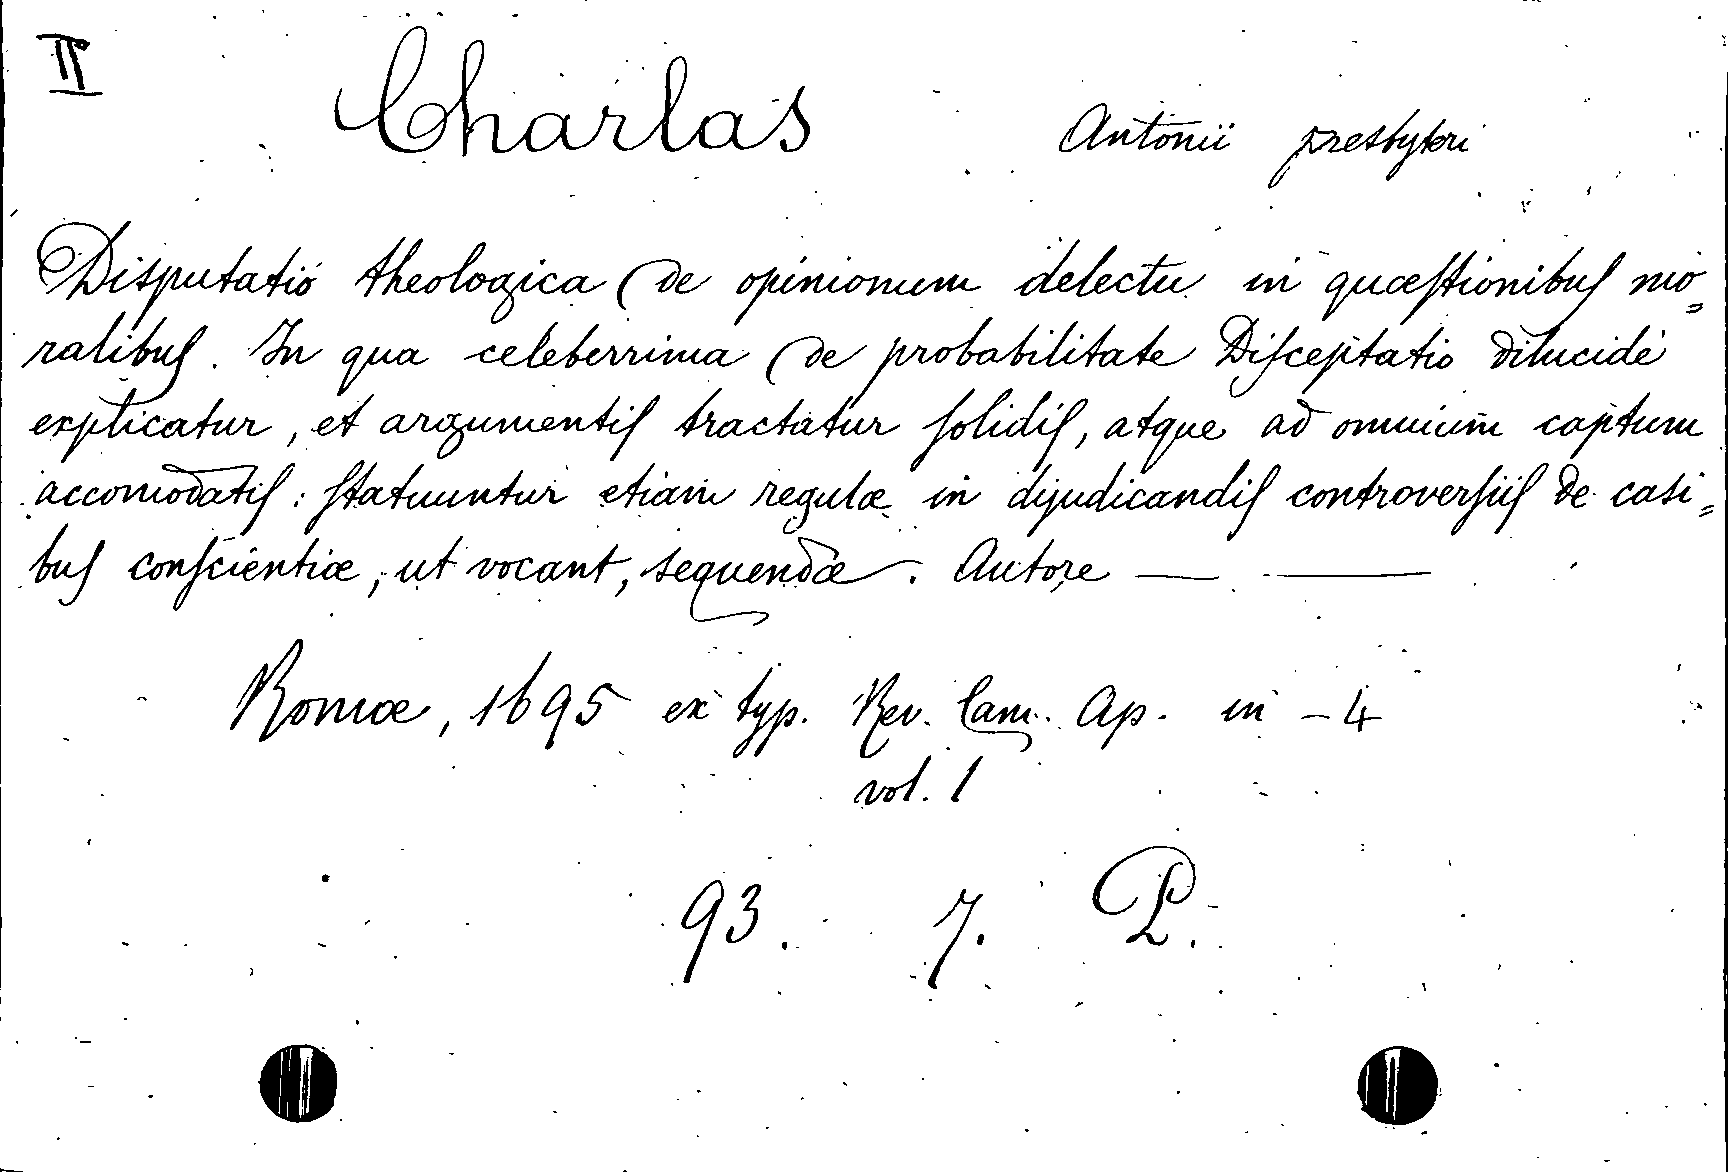 II
Charlas Antonii presbyteri
Disputatio theologica de opinionum delectu in quæſtionibuſ mo=
ralibuſ. In qua celeberrima de probabilitate Diſceptatio dilucidè
explicatur, et argumentiſ tractatur ſolidiſ, atque ad omnium captum
accomodatiſ: ſtatuuntur etiam regulæ in dijudicandiſ controverſiiſ de casi=
buſ conſcientiæ, ut vocant, sequendæ. Autore — —
Romæ, 1695 ex typ. Rev. Cam. Ap. in -4
vol. 1
93. 7. P.